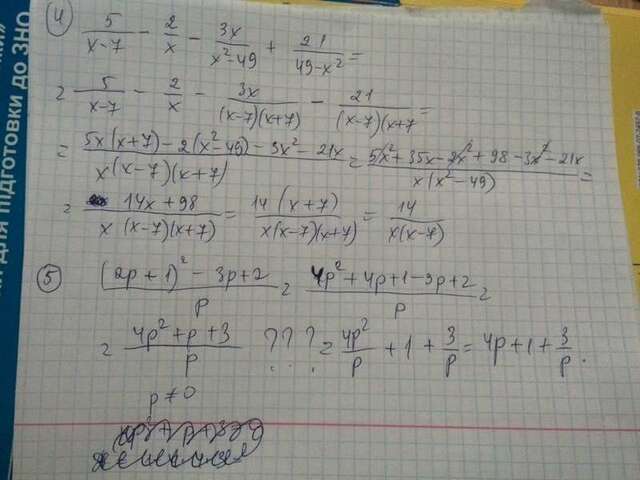 для підготовки до ЗНО
4) 5/(x-7) - 2/x - 3x/(x²-49) + 21/(49-x²) =
= 5/(x-7) - 2/x - 3x/((x-7)(x+7)) - 21/((x-7)(x+7 =
= (5x(x+7) - 2(x²-49) - 3x² - 21x)/(x(x-7)(x+7)) = (5x² + 35x - 2x² + 98 - 3x² - 21x)/(x(x²-49)) =
= (14x + 98)/(x(x-7)(x+7)) = (14(x+7))/(x(x-7)(x+7)) = 14/(x(x-7))
5) ((2p+1)² - 3p+2)/p = (4p² + 4p + 1 - 3p + 2)/p =
= (4p² + p + 3)/p ??? = 4p²/p + 1 + 3/p = 4p + 1 + 3/p.
p ≠ 0